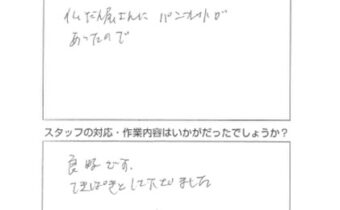 仏だん屋さんに パンフレットが
あったので
スタッフの対応・作業内容はいかがだったでしょうか？
良好です。
てきぱきとして下さいました